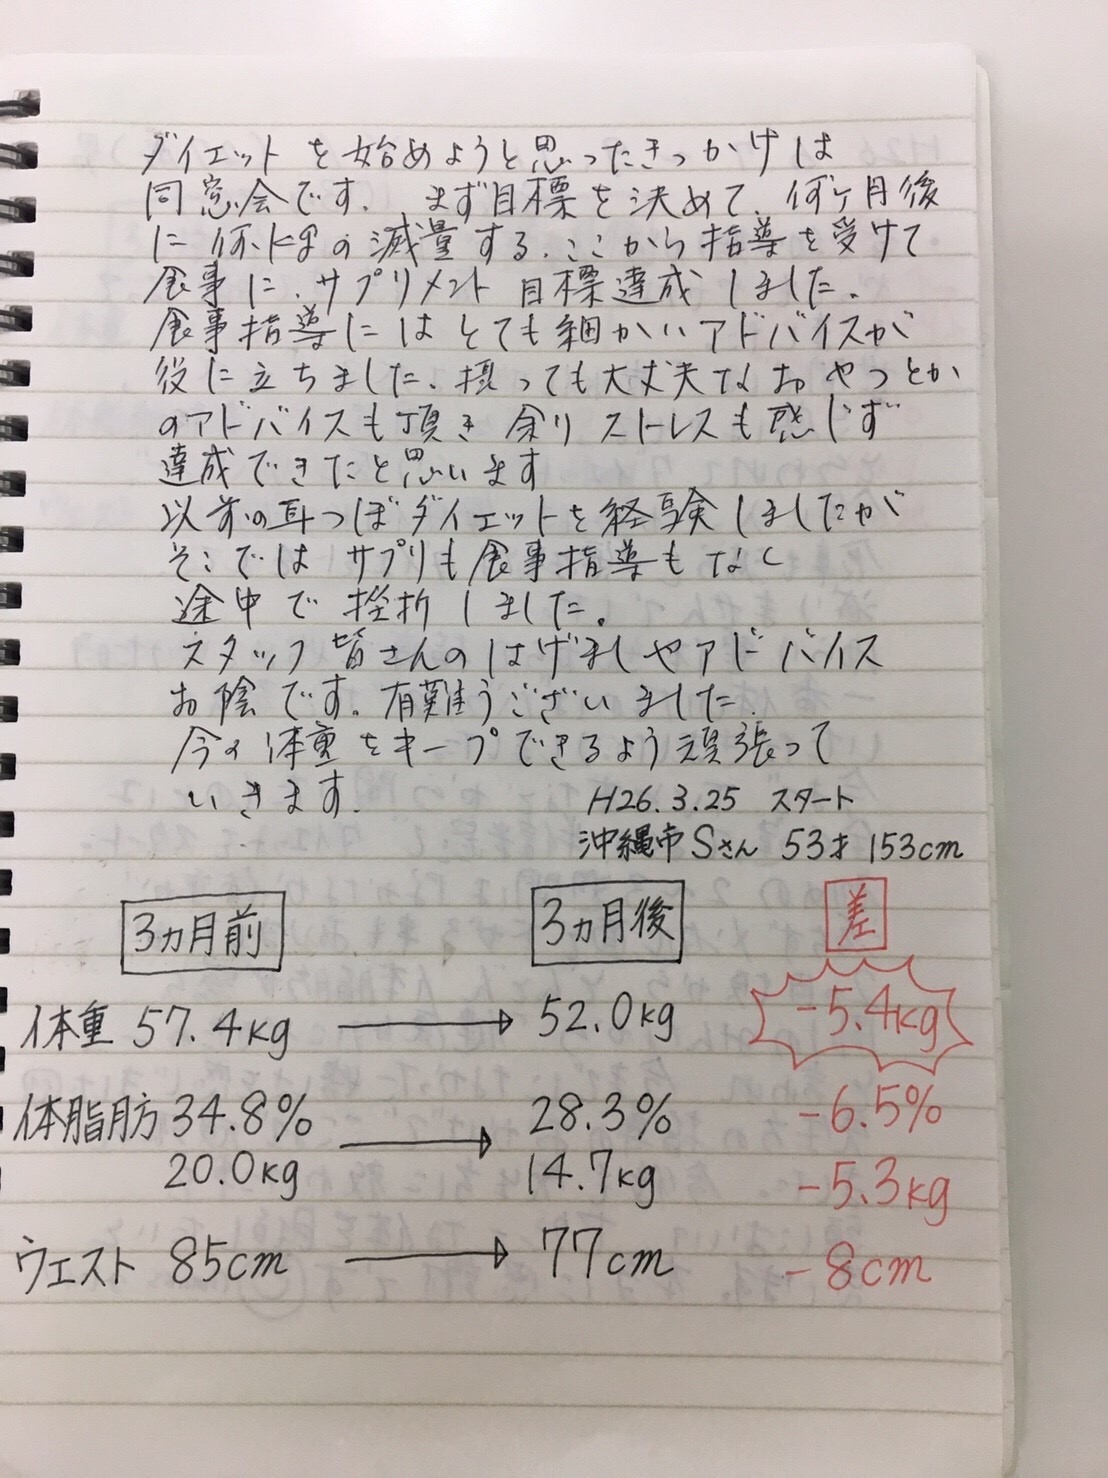 ダイエットを始めようと思ったきっかけは
同窓会です. まず目標を決めて、何ヶ月後
に何kgの減量する、ここから指導を受けて
食事に、サプリメント 目標達成しました。
食事指導にはとても細かいアドバイスが
役に立ちました、摂っても大丈夫なおやつとか
のアドバイスも頂き 余りストレスも感じず
達成できたと思います
以前の耳つぼダイエットを経験しましたが
そこではサプリも食事指導もなく
途中で挫折しました。
スタッフ皆さんのはげましやアドバイス
お陰です。有難うございました.
今の体重をキープできるよう頑張って
いきます.
H26.3.25 スタート
沖縄市Sさん 53才 153cm
3ヵ月前 3ヵ月後 差
体重 57.4kg → 52.0kg -5.4kg
体脂肪 34.8% → 28.3% -6.5%
20.0kg 14.7kg -5.3kg
ウェスト 85cm → 77cm -8cm